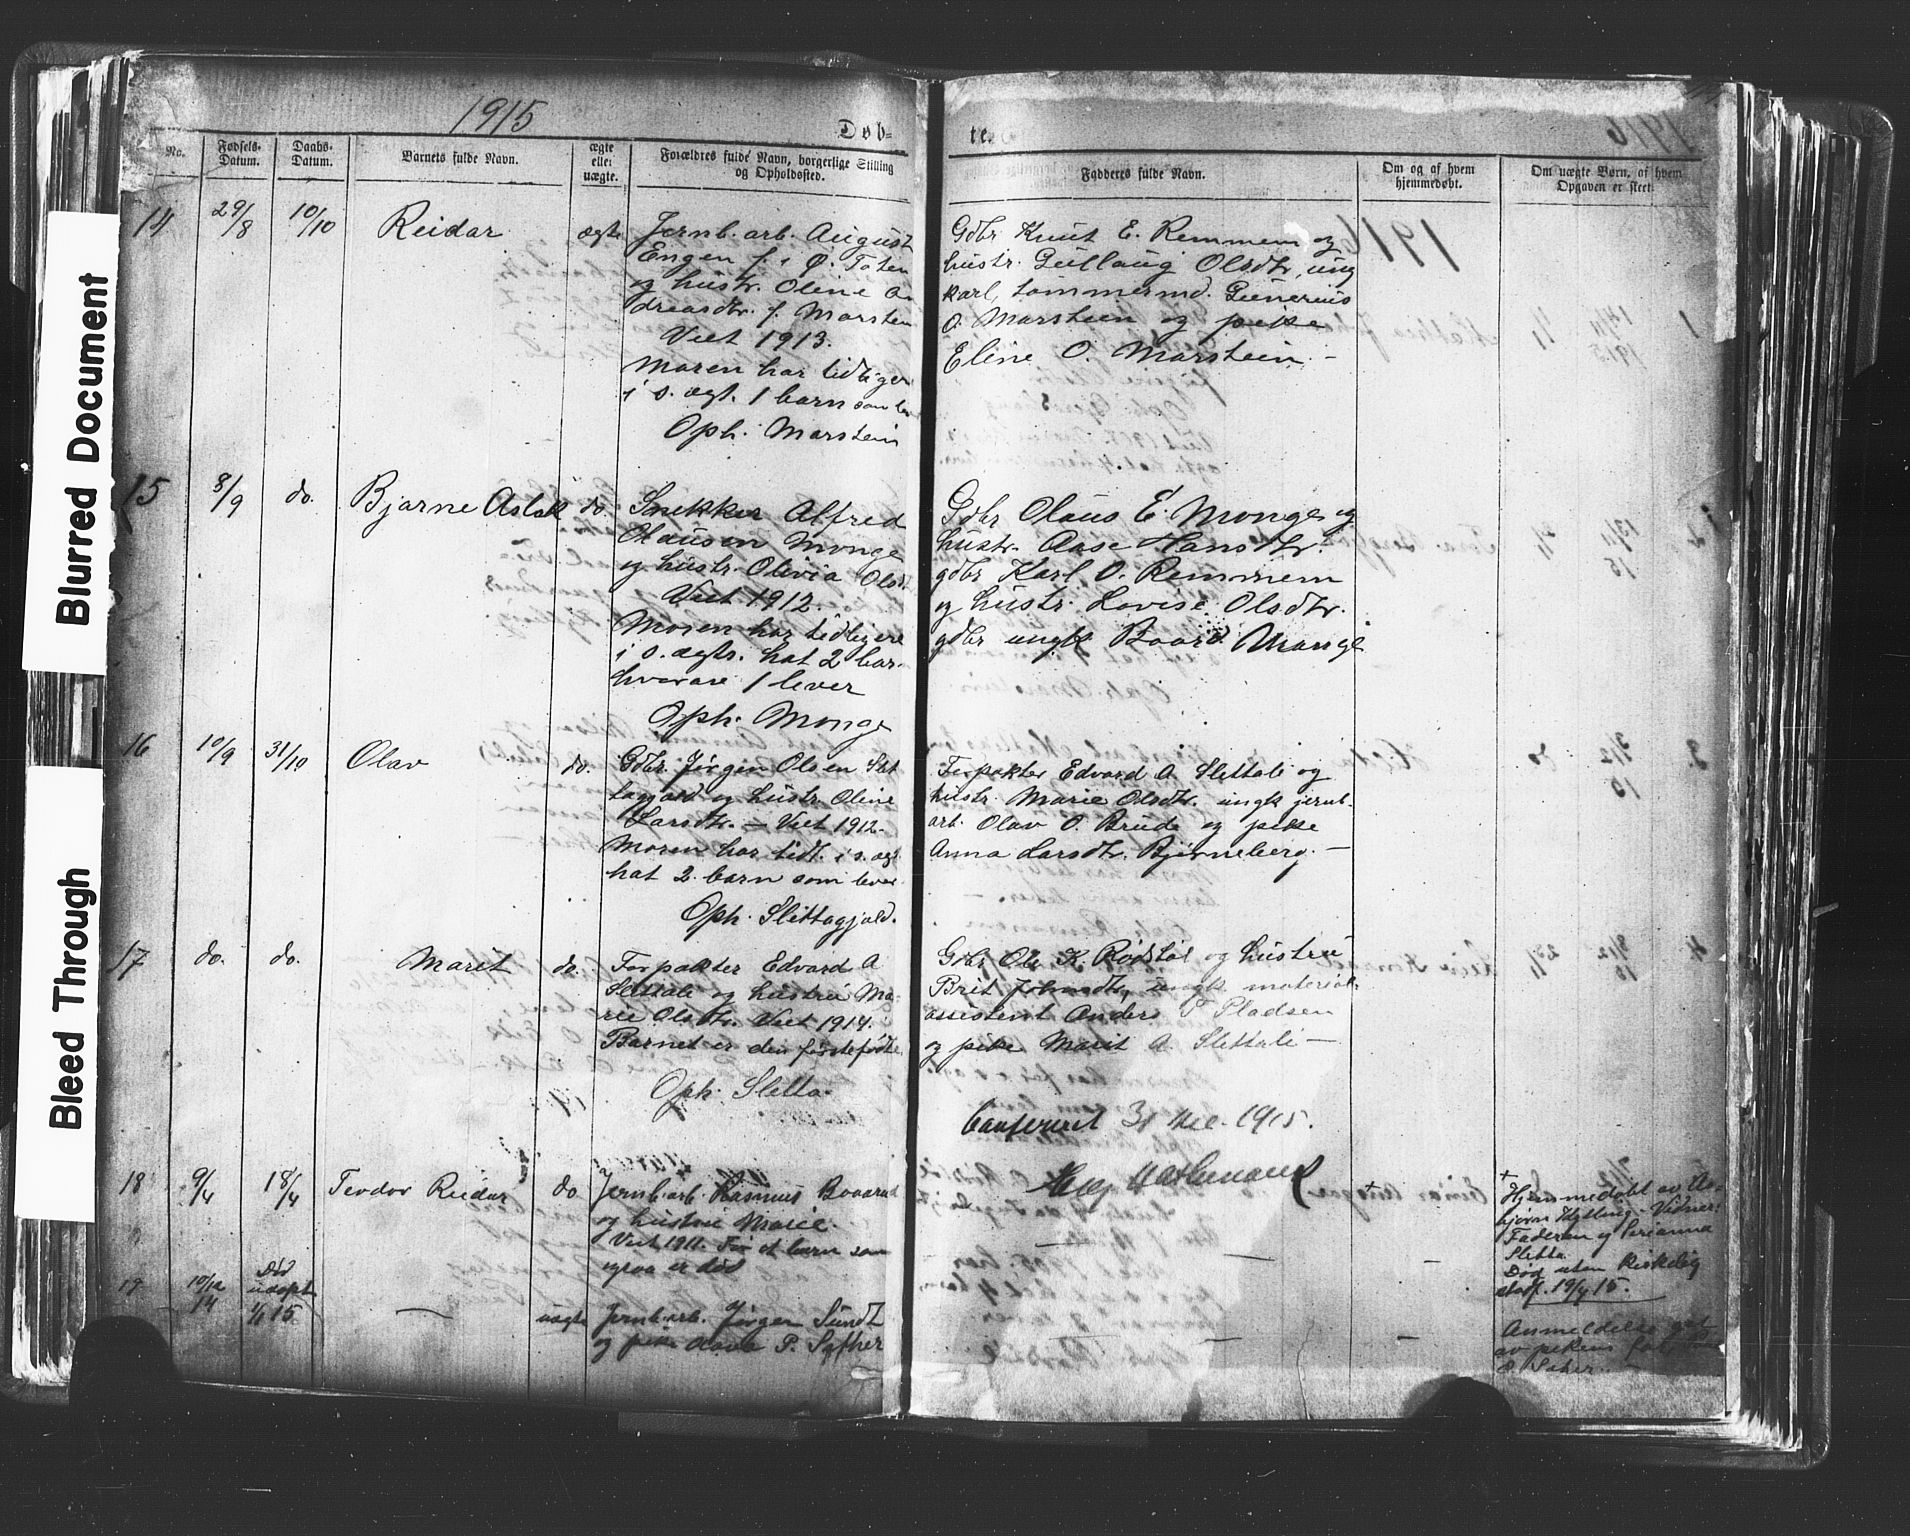 1915
Døb-
te.
1916
No.
Fødsels-
Datum.
Daabs-
Datum.
Barnets fulde Navn.
ægte
eller
uægte.
Forældres fulde Navn, borgerlige Stilling
og Opholdssted.
Fadderes fulde Navn.
Om og af hvem
hjemmedøbt.
Om uægte Børn, af hvem
Opgaven er skeet.
Blurred Document
Bleed Through
14
29/8
10/10
Reidar
ægte
Jernb. arb. August
Engen f. i Ø. Toten
og hustr. Oline An
dreasdtr. f. Marstein
Viet 1913.
Moren har tidliger
i s. ægt. 1 barn som lev
Oph. Marstein
Gdbr Knut E. Remmem og
hustr. Gullaug Olsdtr, ung
karl, tømmermd. Gunerius
O. Marstein og pike
Eline O. Marstein. –
1916
15
8/9
do.
Bjarne Aslak
do.
Snekker Alfred
Olausen Monge
og hustr. Olivia Olsdt.
Viet 1912.
Moren har tidligere
i s. ægt. hat 2 bar.
hvorav 1 lever
Oph. Monge
Gdbr Olaus E. Monge og
hustr. Aase Hansdtr.
gdbr Karl O. Remmem
og hustr. Lovise Olsdtr.
gdbr ungk Baard Monge
16
10/9
31/10
Olav
do.
Gdbr. Jørgen Olsen Slet
tagjærd og hustr. Oline
Larsdtr. – Viet 1912.
Moren har tidl. i s. ægt.
hat 2 barn som lever.
Oph. Slettagjærd.
Forpakter Edvard A. Slettali og
hustr. Marie Olsdtr. ungk jernb.
arb. Olav O. Brude og pike
Anna Larsdtr. Bjørneberg. –
17
do.
do.
Marit
do.
Forpakter Edvard A
Slettali og hustru Ma-
rie Olsdtr. Viet 1914.
Barnet er den førstefødte
Oph. Sletta.
Gdbr Ole K. Rødstøl og hustru
Brit Johnsdtr, ungk material-
assistent Anders T Pladsen
og pike Marit A. Slettali –
Confereret 31 Dec. 1915.
18
9/4
18/4
Teodor Reidar
do
Jernb. arb. Rasmus
og hustru Marie.
Viet 1911. Før et barn som
ogsaa er død
–
–
+
Hjemmedøbt av As-
bjørn Kylling. Vidner:
Faderen og Perianna
Sletta.
Død uten kirkelig
stadf. 19/4 15.
19
10/12
14
Død
udøpt
1/1 15
–
uægte
Jernb. arb. Jørgen Sundt
og pike P. Sæther
–
–
Anmeldelse gat
av pikens far,
O. Sæher. –